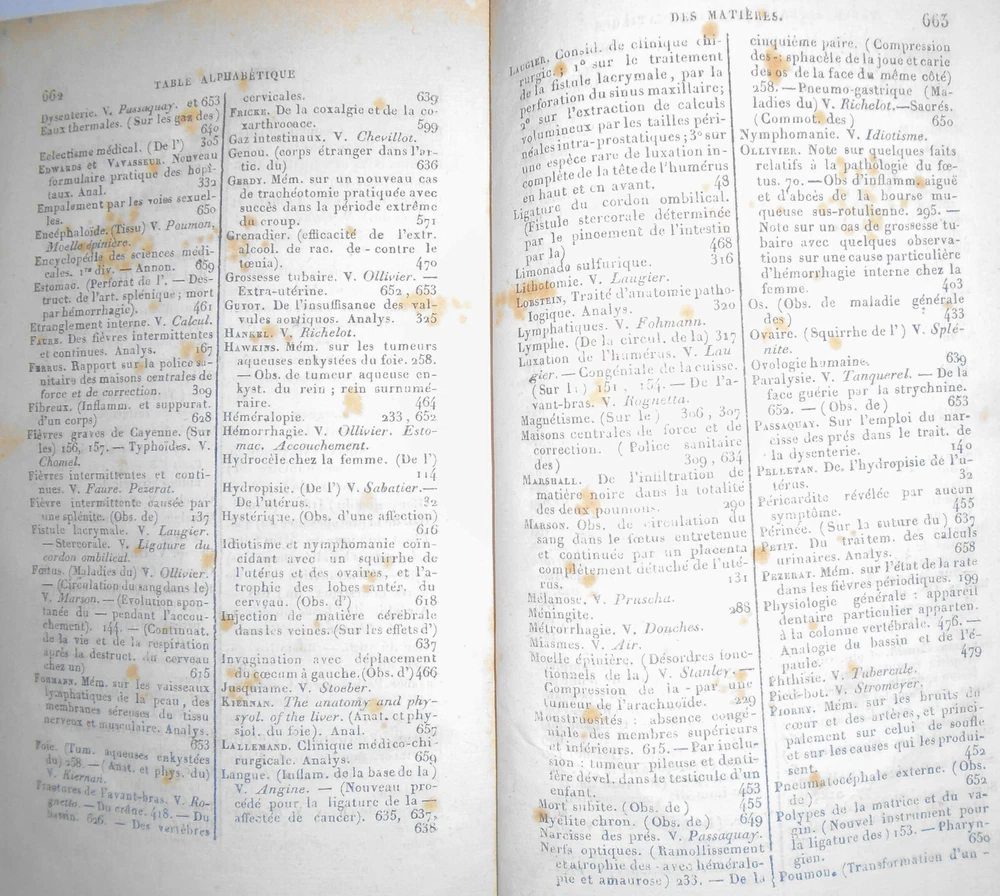 662
TABLE ALPHABÉTIQUE
Dysenterie. V. Passaquay. et 653
Eaux thermales. (Sur les gaz des)
640
Eclectisme médical. (De l') 305
EDWARDS et VAVASSEUR. Nouveau
formulaire pratique des hopi-
taux. Anal. 332
Empalement par les voies sexuel-
les. 650
Encéphaloïde. (Tissu) V. Poumon,
Moelle épinière.
Encyclopédie des sciences médi-
cales. 1re div. — Annon. 659
Estomac. (Perforat de l'. — Des-
truct. de l'art. splénique; mort
par hémorrhagie). 461
Etranglement interne. V. Calcul.
FAURE. Des fièvres intermittentes
et continues. Analys. 167
FERRUS. Rapport sur la police sa-
nitaire des maisons centrales de
force et de correction. 309
Fibreux. (Inflamm. et suppurat.
d'un corps) 628
Fièvres graves de Cayenne. (Sur
les) 156, 157. — Typhoïdes. V.
Chomel.
Fièvres intermittentes et conti-
nues. V. Faure. Pezerat.
Fièvre intermittente causée par
une splénite. (Obs. de) 137
Fistule lacrymale. V. Laugier.
— Stercorale. V. Ligature du
cordon ombilical.
Fœtus. (Maladies du) V. Ollivier.
— (Circulation du sang dans le)
V. Marson. — (Evolution spon-
tanée du — pendant l'accou-
chement). 144. — (Continuat.
de la vie et de la respiration
après la destruct. du cerveau
chez un) 615
FOHMANN. Mém. sur les vaisseaux
lymphatiques de la peau, des
membranes séreuses du tissu
nerveux et musculaire. Analys.
653
Foie. (Tum. aqueuses enkystées
du) 258. — (Anat. et phys. du)
V. Kiernan.
Fractures de l'avant-bras. V. Ro-
gnetta. — Du crâne. 418. — Du
bassin. 626. — Des vertèbres
cervicales. 639
FRICKE. De la coxalgie et de la co-
xarthrocace. 599
Gaz intestinaux. V. Chevillot.
Genou. (corps étranger dans l'ar-
tic. du) 636
GERDY. Mém. sur un nouveau cas
de trachéotomie pratiquée avec
succès dans la période extrême
du croup. 571
Grenadier. (efficacité de l'extr.
alcool. de rac. de - contre le
tœnia). 470
Grossesse tubaire. V. Ollivier. —
Extra-utérine. 652, 653
GUYOT. De l'insuffisance des val-
vules aortiques. Analys. 325
HANKEL. V. Richelot.
HAWKINS. Mém. sur les tumeurs
aqueuses enkystées du foie. 258.
— Obs. de tumeur aqueuse en-
kyst. du rein; rein surnumé-
raire. 464
Héméralopie. 233, 652
Hémorrhagie. V. Ollivier. Esto-
mac. Accouchement.
Hydrocèle chez la femme. (De l')
114
Hydropisie. (De l') V. Sabatier.—
De l'utérus. 32
Hystérique. (Obs. d'une affection)
616
Idiotisme et nymphomanie coïn-
cidant avec un squirrhe de
l'utérus et des ovaires, et l'a-
trophie des lobes antér. du
cerveau. (Obs. d') 618
Injection de matière cérébrale
dans les veines. (Sur les effets d')
637
Invagination avec déplacement
du cœcum à gauche. (Obs. d') 466
Jusquiame. V. Stoeber.
KIERNAN. The anatomy and phy-
syol. of the liver. (Anat. et phy-
siol. du foie). Anal. 657
LALLEMAND. Clinique médico-chi-
rurgicale. Analys. 659
Langue. (Inflam. de la base de la)
V. Angine. — (Nouveau pro-
cédé pour la ligature de la —
affectée de cancer). 635, 637,
638
DES MATIÈRES.
663
LAUGIER. Consid. de clinique chi-
rurgic.; 1° sur le traitement
de la fistule lacrymale, par la
perforation du sinus maxillaire;
2° sur l'extraction de calculs
volumineux par les tailles péri-
néales intra-prostatiques; 3° sur
une espèce rare de luxation in-
complète de la tête de l'humérus
en haut et en avant. 48
Ligature du cordon ombilical.
(Fistule stercorale déterminée
par le pincement de l'intestin
par la) 468
Limonade sulfurique. 316
Lithotomie. V. Laugier.
LOBSTEIN, Traité d'anatomie patho-
logique. Analys. 320
Lymphatiques. V. Fohmann.
Lymphe. (De la circul. de la) 317
Luxation de l'humérus. V. Lau
gier. — Congéniale de la cuisse.
(Sur la) 151, 154. — De l'a-
vant-bras. V. Rognetta.
Magnétisme. (Sur le) 306, 307
Maisons centrales de force et de
correction. (Police sanitaire
des) 309, 634
MARSHALL. De l'infiltration de
matière noire dans la totalité
des deux poumons. 290
MARSON. Obs. de circulation du
sang dans le fœtus entretenue
et continuée par un placenta
complètement détaché de l'uté-
rus. 131
Mélanose. V. Pruscha.
Méningite. 288
Métrorrhagie. V. Douches.
Miasmes. V. Air.
Moelle épinière. (Désordres fonc-
tionnels de la) V. Stanley. —
Compression de la - par une
tumeur de l'arachnoïde. 229
Monstruosités: absence congé-
niale des membres supérieurs
et inférieurs. 615. — Par inclu-
sion: tumeur pileuse et denti-
fère dével. dans le testicule d'un
enfant. 453
Mort subite. (Obs. de) 455
Myélite chron. (Obs. de) 649
Narcisse des prés. V. Passaquay.
Nerfs optiques. (Ramollissement
et atrophie des - avec héméralo-
pie et amaurose) 233. — De la
cinquième paire. (Compression
des -: sphacèle de la joue et carie
des os de la face du même côté)
258. — Pneumo-gastrique (Ma-
ladies du) V. Richelot.—Sacrés.
(Commot. des) 650
Nymphomanie. V. Idiotisme.
OLLIVIER. Note sur quelques faits
relatifs à la pathologie du fœ-
tus. 70. — Obs d'inflamm. aiguë
et d'abcès de la bourse mu-
queuse sus-rotulienne. 295. —
Note sur un cas de grossesse tu-
baire avec quelques observa-
tions sur une cause particulière
d'hémorrhagie interne chez la
femme. 403
Os. (Obs. de maladie générale
des) 433
Ovaire. (Squirrhe de l') V. Splé-
nite.
Ovologie humaine. 639
Paralysie. V. Tanquerel. — De la
face guérie par la strychnine.
652. — (Obs. de) 653
PASSAQUAY. Sur l'emploi du nar-
cisse des prés dans le trait. de
la dysenterie. 140
PELLETAN. De l'hydropisie de l'u-
térus. 32
Péricardite révélée par aucun
symptôme. 455
Périnée. (Sur la suture du) 637
PETIT. Du traitem. des calculs
urinaires. Analys. 658
PEZERAT. Mém. sur l'état de la rate
dans les fièvres périodiques. 199
Physiologie générale: appareil
dentaire particulier apparten.
à la colonne vertébrale. 476. —
Analogie du bassin et de l'é-
paule. 479
Phthisie. V. Tubercule.
Pied-bot. V. Stromeyer.
PIORRY. Mém. sur les bruits du
cœur et des artères, et princi-
palement sur celui de soufle
et sur les causes qui les produi-
sent. 452
Pneumatocéphale externe. (Obs.
de) 652
Polypes de la matrice et du va-
gin. (Nouvel instrument pour
la ligature des) 153. — Pharyn-
gien. 650
Poumon. (Transformation d'un -